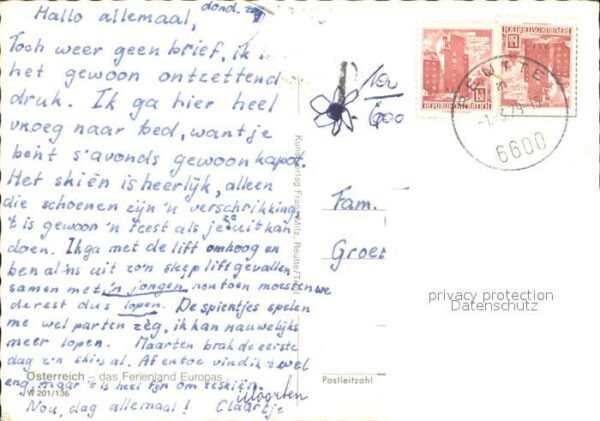 dond. 
Hallo allemaal,
Toch weer geen brief, ik
het gewoon ontzettend
druk. Ik ga hier heel
vroeg naar bed, want je
bent s'avonds gewoon kapot.
Het skiën is heerlijk, alleen
die schoenen zijn 'n verschrikking,
't is gewoon 'n feest als je ze uit kan
doen. Ik ga met de lift omhoog en
ben al 'ns uit zo'n sleeplift gevallen
samen met 'n jongen nou toen moesten we
de rest dus lopen. De spiertjes spelen
me wel parten zèg, ik kan nauwelijks
meer lopen. Maarten brak de eerste
dag z'n ski's al. Af en toe vind ik 't wel
eng, maar 't is heel fijn om te skiën.
Nou, dag allemaal! Claartje
Maarten
Österreich – das Ferienland Europas
W 201/136
Kunstverlag Franz Milz, Reutte/Tirol
REPUBLIK ÖSTERREICH
REPUBLIK ÖSTERREICH
REUTTE
6600
Fam.
Groe
Postleitzahl
privacy protection
Datenschutz